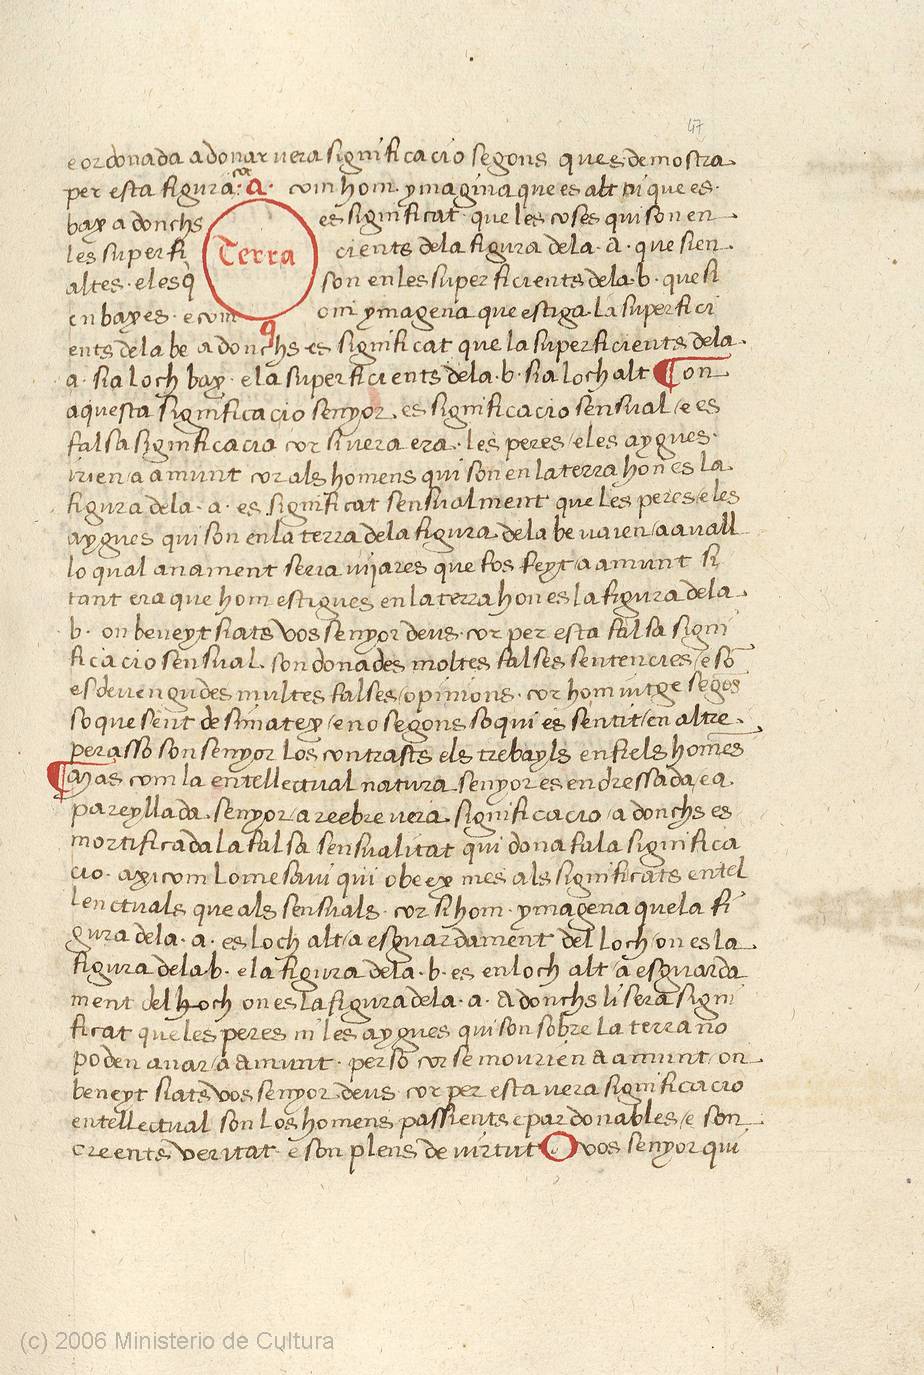 47
e ordonada a donar vera significacio segons que es demostra
per esta figura cor a. com hom ymagina que es alt ni que es
bax a donchs es significat que les coses qui son en
les superfi Terra cients de la figura de la a. que sien
altes e les q̄ son en les superficients de la b. que si
en baxes e com om ymagena que estiga la superfici
ents de la be a donchs es significat que la superficients de la
a. sia loch bax e la superficients de la b. sia loch alt ¶ on
aquesta significacio senyor es significacio sensual e es
falsa significacia cor si vera era les peres e les aygues
irien a amunt cor als homens qui son en la terra hon es la
figura de la a. es significat sensualment que les peres e les
aygues qui son en la terra de la figura de la be vaien a avall
lo qual anament seria vijares que fos feyt a amunt si
tant era que hom estigues en la terra hon es la figura de la
b. on beneyt siats vos senyor deus cor per esta falsa signi
ficacio sensual son donades moltes falses sentencies e sō
esdevengudes multes falses opinions cor hom jutge segōs
so que sent de si matex e no segons so qui es sentit en altre
per asso son senyor los contrasts els trebayls enfiels homēs
¶ Mas com la entellectual natura senyor es endressada e a
pareyllada senyor a reebre vera significacio a donchs es
mortificada la falsa sensualitat qui dona fala significa
cio axi com lome savi qui obeex mes als significats entel
lenctuals que als sensuals cor si hom ymagena que la fi
gura de la a. es loch alt a esguardament del loch on es la
figura de la b. e la figura de la b. es en loch alt a esguarda
ment del loch on es la figura de la a. A donchs li sera signi
ficat que les peres ni les aygues qui son sobre la terra no
poden anar a amunt per so cor se mourien a amunt on
beneyt siats vos senyor deus cor per esta vera significacio
entellectual son los homens passients e pardonables e son
creents veritat e son plens de virtut O vos senyor qui
(c) 2006 Ministerio de Cultura